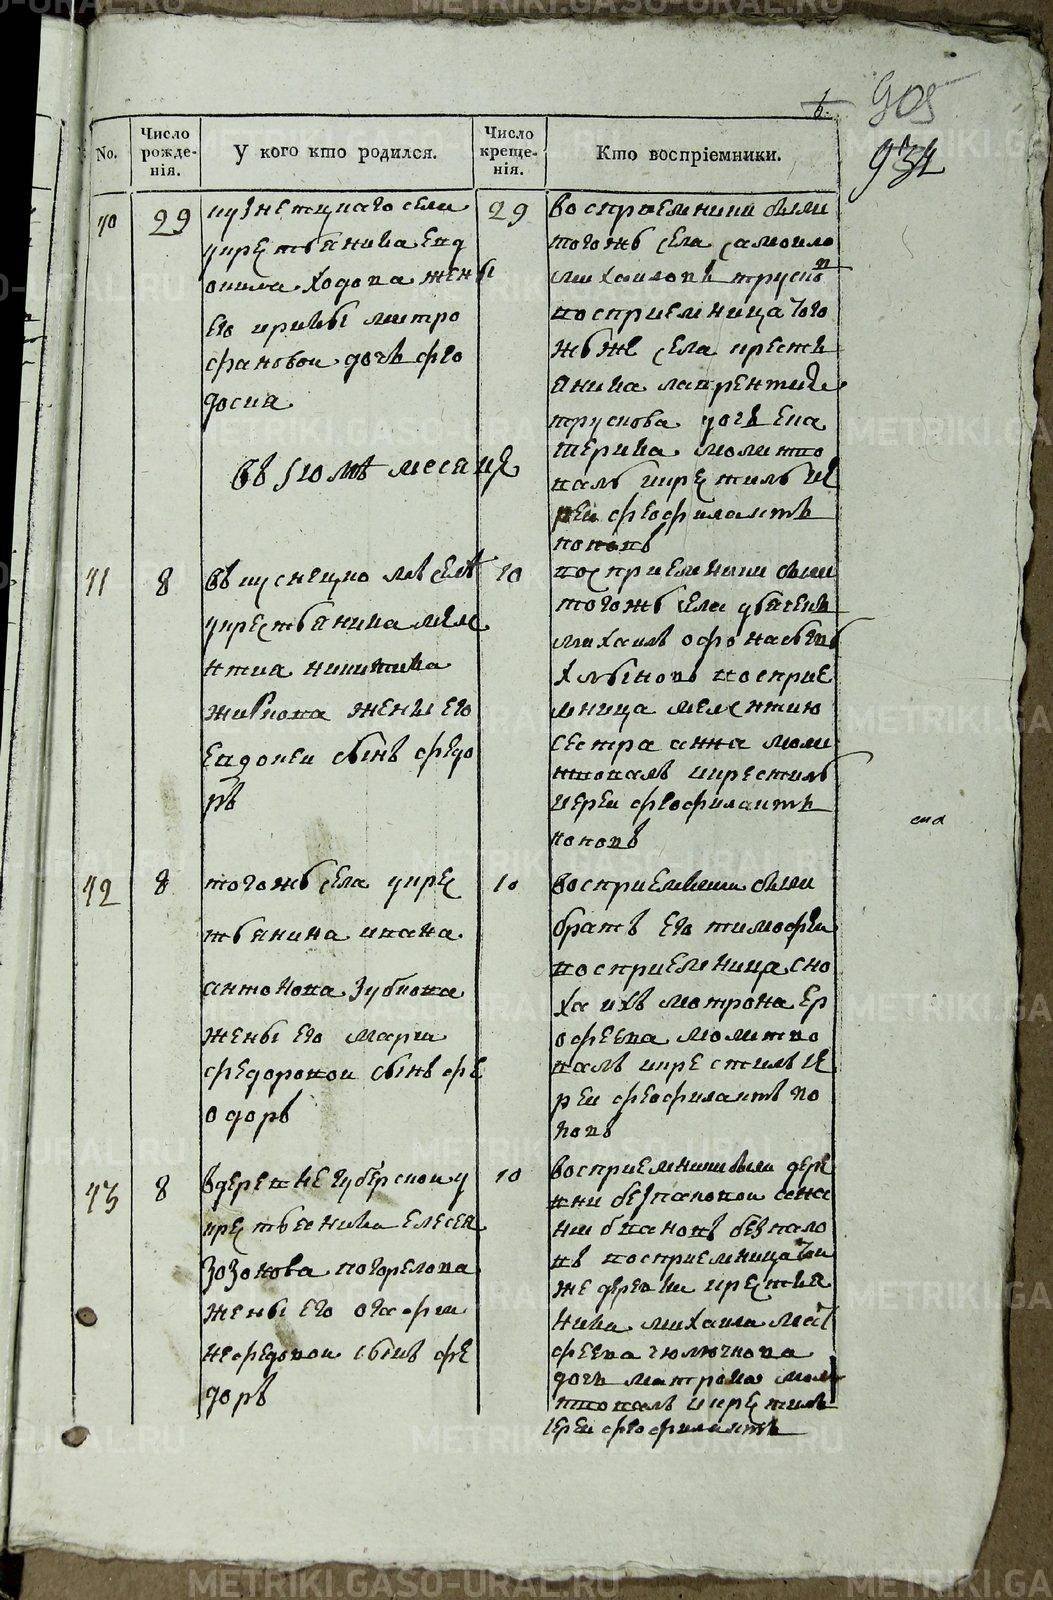 905
934
No.
Число рожде-нія.
У кого кто родился.
Число креще-нія.
Кто воспріемники.
40
29
кузнецкаго села
крестьянина Евд
окима Ходова жены
его ирины митро
фановои дочь фео
досиа
29
восприемники были
тогожъ села самоило
михаиловъ трусов
восприемница того
жъ же села крестья
янина лаврентия
трускова дочь Ека
терина молитво
валъ икрестилъ ие
реи феофилактъ
поповъ
въ июлѣ месяце
41
8
въ кузнецкомъ селѣ
крестьянина меле
нтиа никитина
жиркова жены его
Евдокеи сынъ федо
ръ
10
восприемники были
тогожъ села
михаилъ офонасьевъ
восприе
мница мелентию
сестра анна моли
твовалъ икрестилъ
иереи феофилактъ
поповъ
42
8
тогожъ села крес
тьянина ивана
антонова Зубкова
жены его марии
федоровои сынъ фе
одоръ
10
восприемники были
братъ его тимофеи
восприемница сно
ха ихъ мотрона Ер
офеева молитво
валъ икрестилъ ие
реи феофилактъ по
повъ
43
8
вдеревне губерскои к
крестьенина Елесея
Зозонова погорелова
жены его огафии
нефедовои сынъ фе
доръ
10
восприемники были дере
вни безпаловои
безпало
въ восприемница тои
же деревни крестья
нина михаила мат
феева
дочь матрона моли
твовалъ икрестилъ
иереи феофилактъ
METRIKI.GASO-URAL.RU